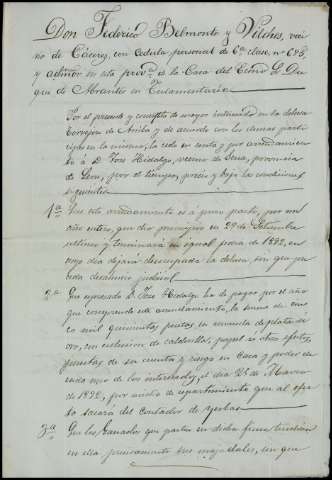 Don Federico Belmonte y Vilches, veci
no de Cáceres, con Cedula personal de 6ª clase, nº 628,
y admor en esta provª de la Casa del Excmo Sr Du
que de Abrantes en Testamentaria
Por el presente y como de mayor interesado en la dehesa
Torrejon de Arriba y de acuerdo con los demas parti
cipes en la misma, la cedo en renta y por arrendamien
to á D. Jose Hidalgo, vecino de provincia
de Leon, por el tiempo, precio y bajo las condiciones
siguientes
1ª Que este arrendamiento es á puro pasto, por un
año entero, que dió principio en 29 de Setiembre
ultimo y terminará en igual fecha de 1892, en
cuyo dia dejará desocupada la dehesa, sin que pre
ceda desahucio judicial
2ª Que expresado D. Jose Hidalgo ha de pagar por el año
que comprende este arrendamiento, la suma de cin
co mil quinientas pesetas en moneda de plata ú
oro, con esclusion de calderilla, papel ni otros efectos,
puestas de su cuenta y riesgo en Casa y poder de
cada uno de los interesados, el dia 25 de Marzo
de 1892, por medio de repartimiento que al efec
to sacará el Contador de yerbas
3ª Que los Ganados que pasten en dicha finca tendrán
en ella precisamente sus majadales, sin que